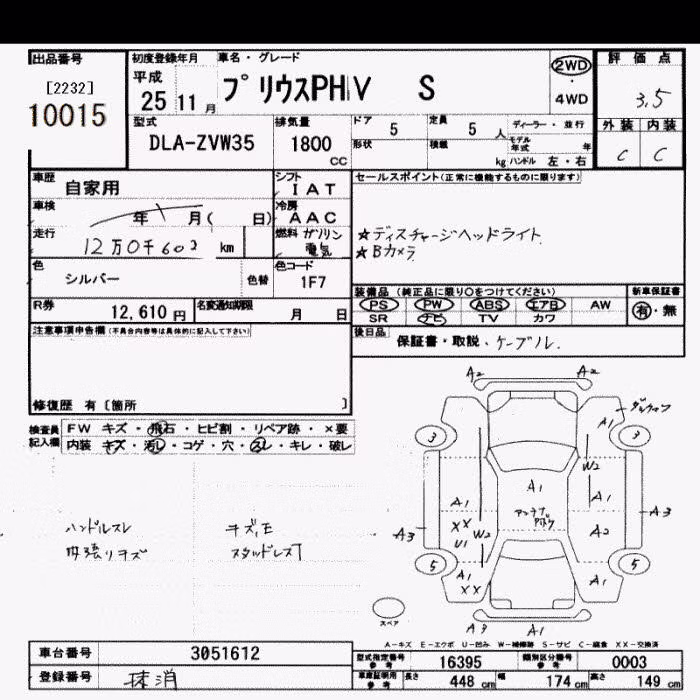 出品番号
[2232]
10015
初度登録年月
平成
25 11 月
車名・グレード
プリウスPHV S
2WD
・
4WD
評価点
3.5
外装 内装
C C
型式
DLA-ZVW35
排気量
1800
CC
ドア
5
定員
5 人
形状
積載
kg
ディーラー・並行
モデル年式 年
ハンドル 左・右
車歴
自家用
シフト
IAT
車検
年 月( 日)
冷房
AAC
走行
12万0千602 km
燃料 ガソリン
電気
色
シルバー
色替
色コード
1F7
セールスポイント(正常に機能するものに限ります)
★ディスチャージヘッドライト
★Bカメラ
装備品 (純正品に限り○をつけてください)
PS PW ABS エアB AW
SR ナビ TV カワ
新車保証書
有・無
R券
12,610 円
名変通知期限
月 日
後日品
保証書・取説・ケーブル
注意事項申告欄(不具合内容等は具体的に記入して下さい)
修復歴 有〔箇所 〕
検査員
記入欄
FW キズ・飛石・ヒビ割・リペア跡・×要
内装 キズ・汚レ・コゲ・穴・スレ・キレ・破レ
ハンドルスレ
内張りキズ
キズ、モ
A2 A2
A1
3 3
W2
A1
A1 A1
XX
U1 W2
A2
A3 A3
5 5
A1
XX
A1
スペア
A3 A1
A-キズ E-エクボ U-凹み W-補修跡 S-サビ C-腐食 XX-交換済
車台番号
3051612
登録番号
抹消
型式指定番号
参考
16395
類別区分番号
参考
0003
車庫証明用
参考
長さ
448 cm
幅
174 cm
高さ
149 cm